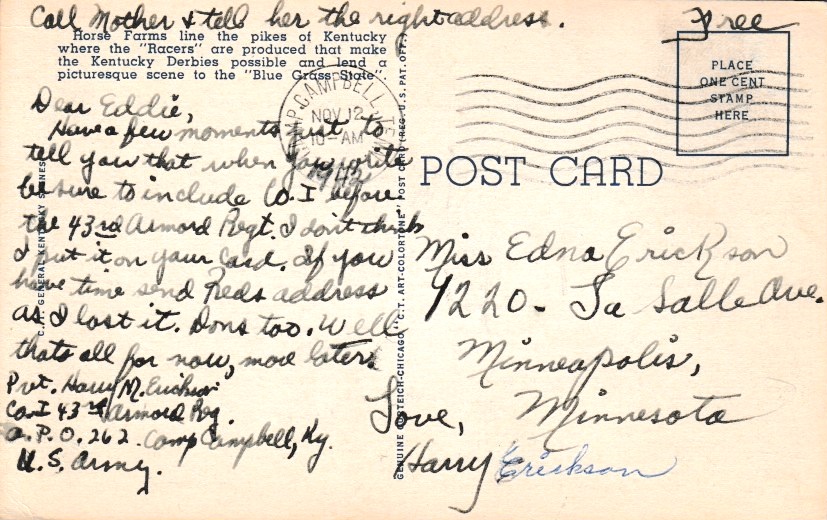 Call Mother & tell her the right address.
Free
Horse Farms line the pikes of Kentucky
where the "Racers" are produced that make
the Kentucky Derbies possible and lend a
picturesque scene to the "Blue Grass State".
PLACE
ONE CENT
STAMP
HERE
CAMP CAMPBELL, TENN.
NOV 12
10-AM
1942
Dear Eddie,
Have a few moments just to
tell you that when you write
be sure to include Co. I before
the 43rd Armord Regt. I don't think
I put it on your card. If you
have time send Reds address
as I lost it. Dons too. Well
thats all for now, more later.
Pvt. Harry M. Erickson
Co. I 43rd Armord Reg.
A.P.O. 262 Camp Campbell, Ky.
U.S. Army.
GENERAL KENTUCKY SCENES
GENUINE CURTEICH-CHICAGO "C.T. ART-COLORTONE" POST CARD (REG. U.S. PAT. OFF.)
POST CARD
Miss Edna Erickson
1220- La Salle Ave.
Minneapolis,
Minnesota
Love,
Harry Erickson